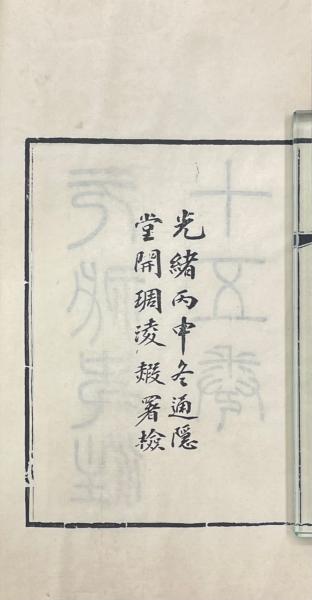 光緒丙申冬通隱
堂開琱淩嘏署檢